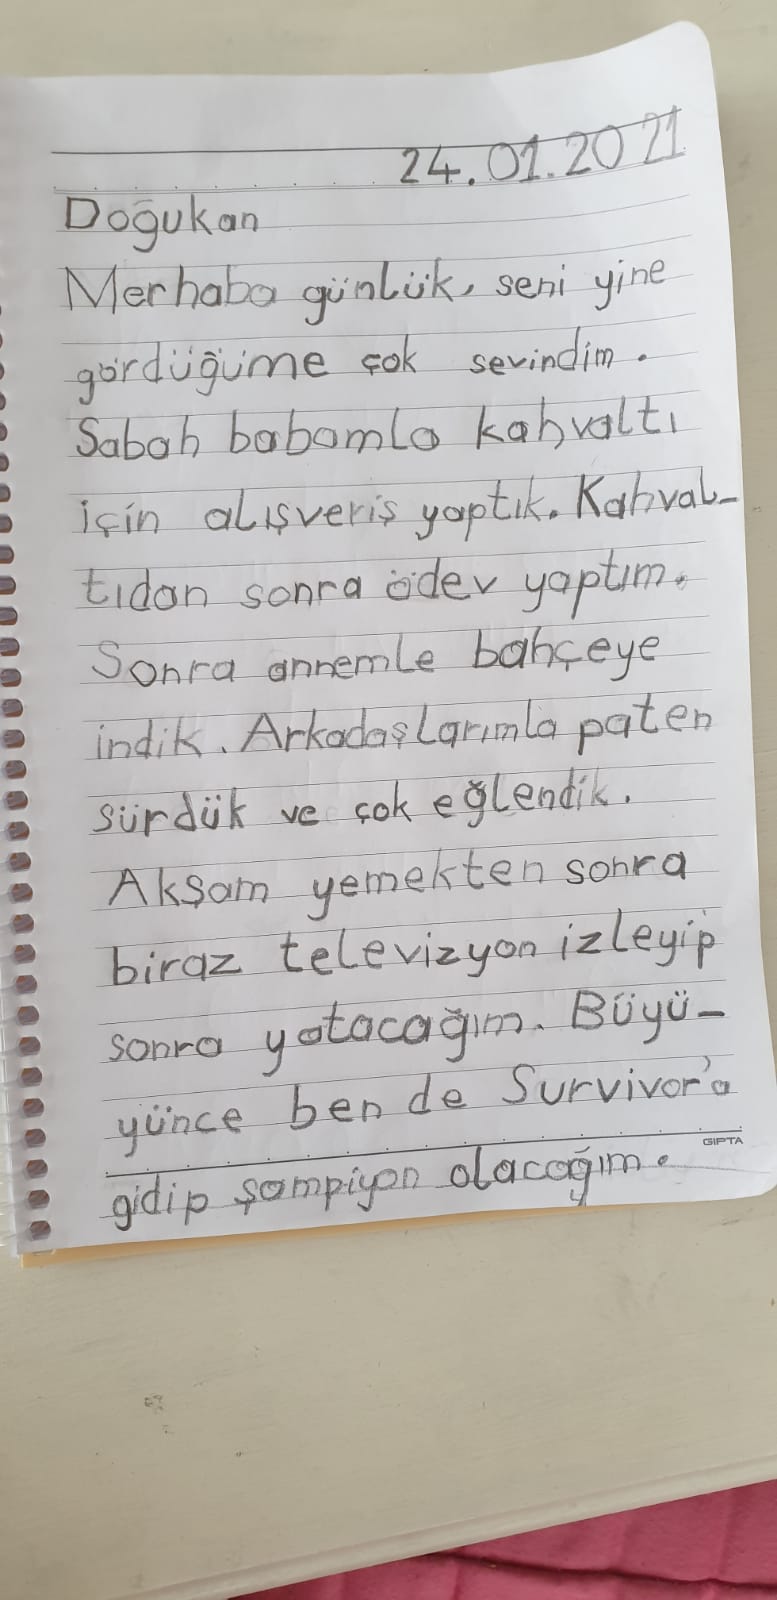 24.01.2021
Doğukan
Merhaba günlük, seni yine
gördüğüme çok sevindim.
Sabah babamla kahvaltı
için alışveriş yaptık. Kahval-
tıdan sonra ödev yaptım.
Sonra annemle bahçeye
indik. Arkadaşlarımla paten
sürdük ve çok eğlendik.
Akşam yemekten sonra
biraz televizyon izleyip
sonra yatacağım. Büyü-
yünce ben de Survivor'a
GIPTA
gidip şampiyon olacağım.